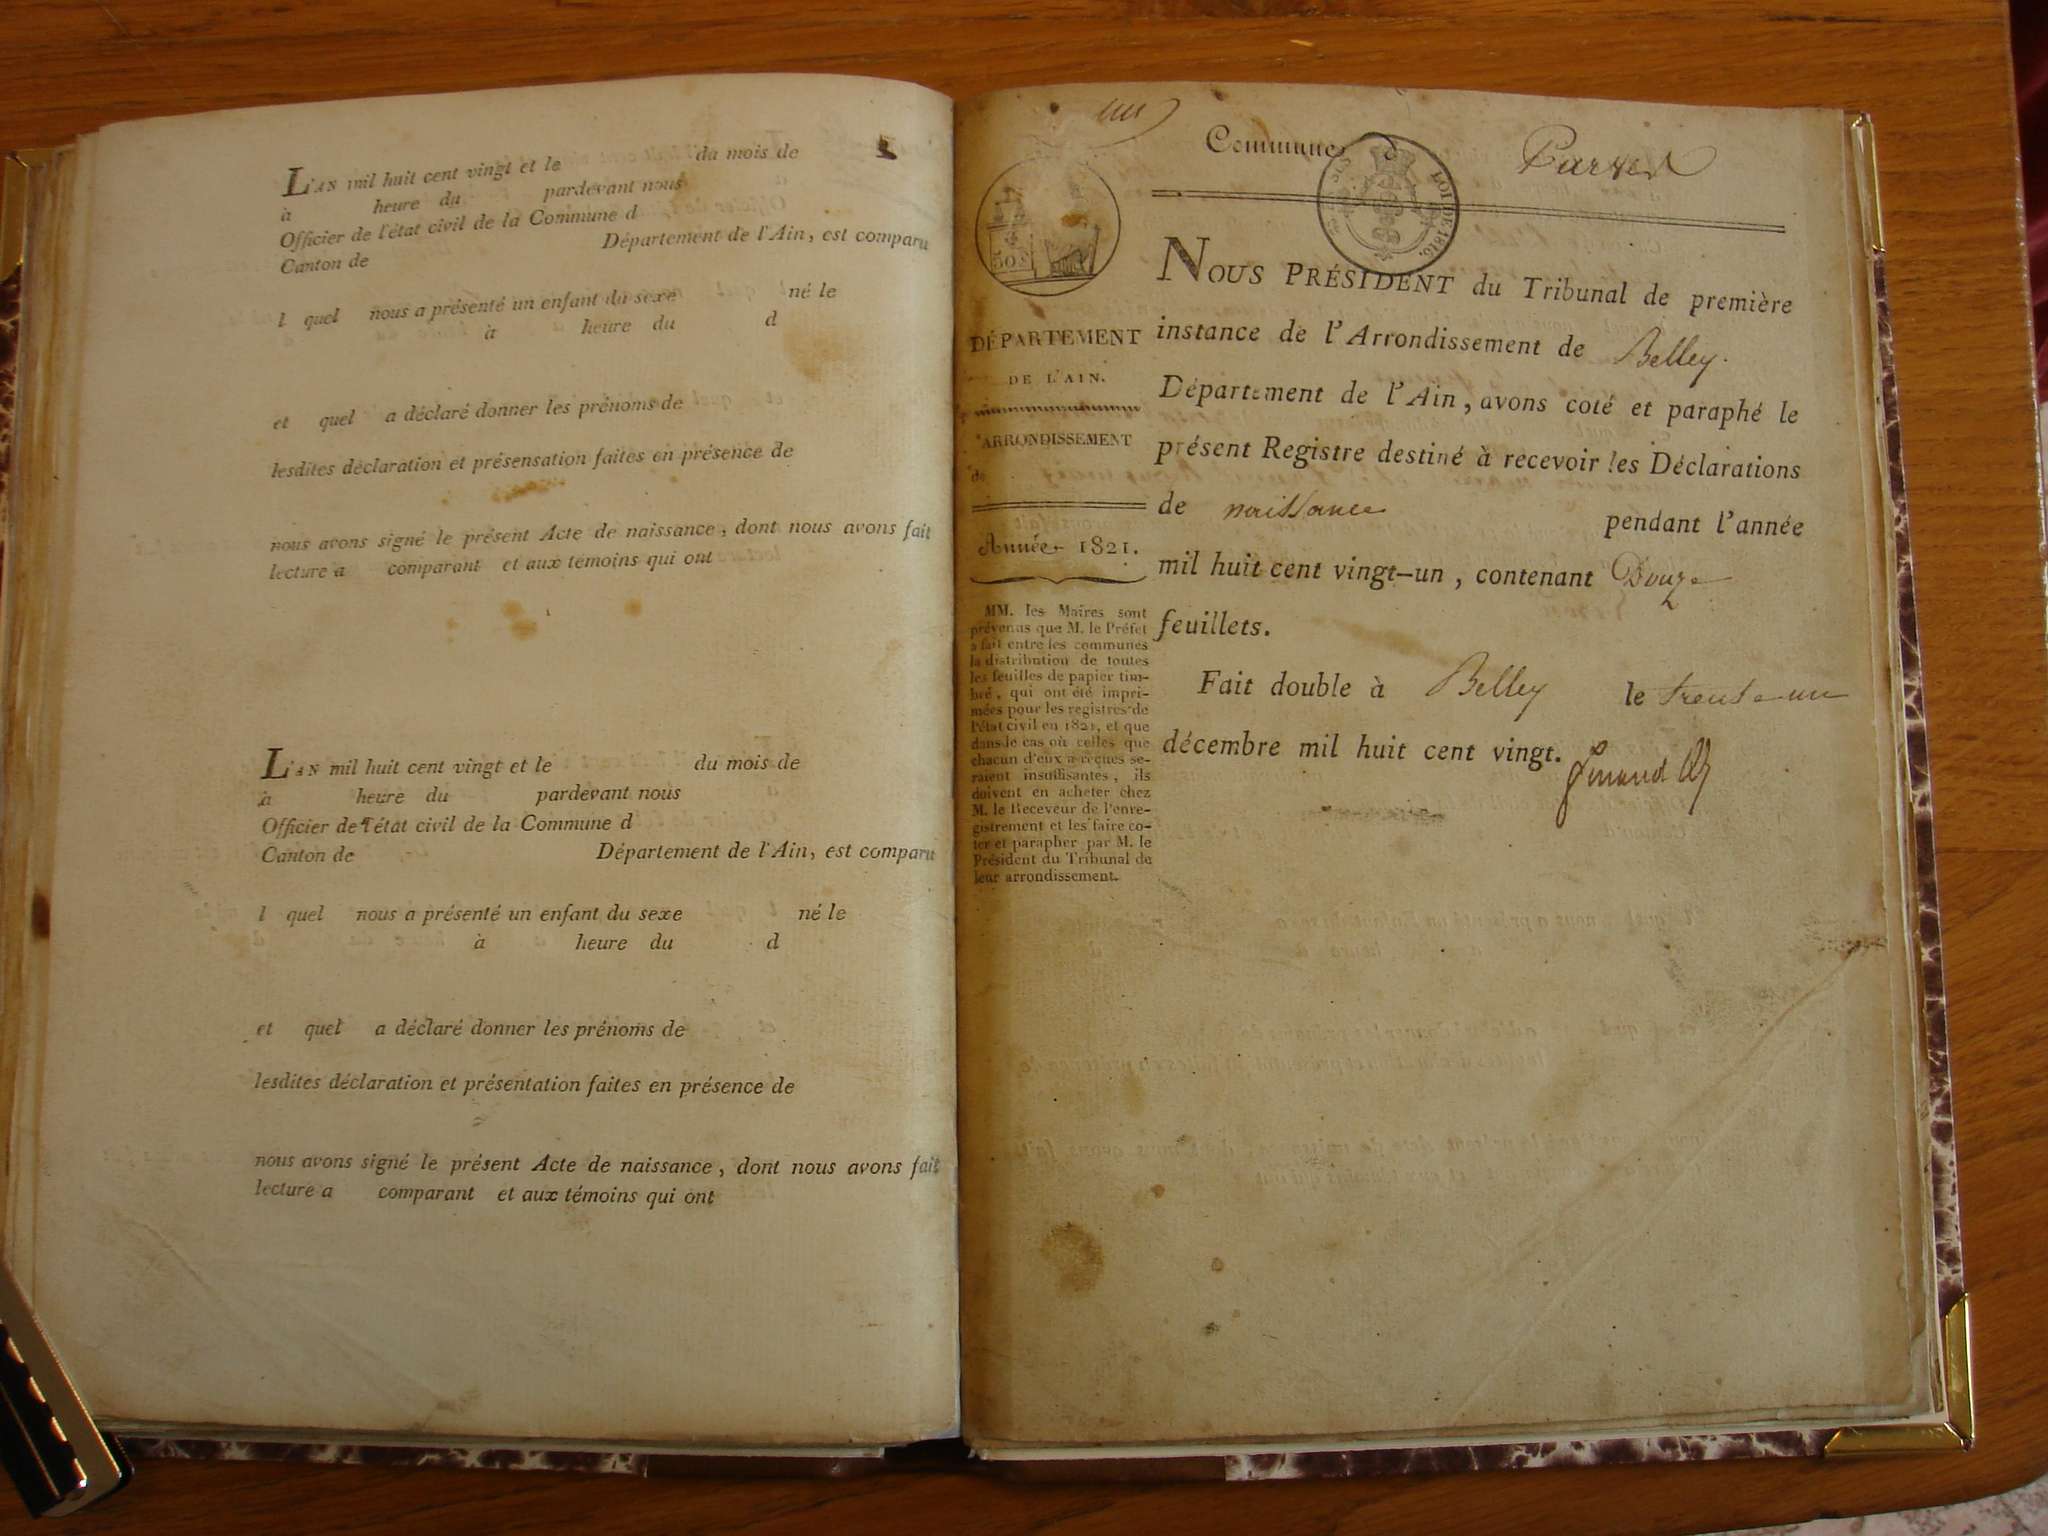 L'AN mil huit cent vingt et le du mois de
à heure du pardevant nous
Officier de l'état civil de la Commune d
Canton de Département de l'Ain, est comparu
l quel nous a présenté un enfant du sexe né le
à heure du d
et quel a déclaré donner les prénoms de
lesdites déclaration et présensation faites en présence de
nous avons signé le présent Acte de naissance, dont nous avons fait
lecture a comparant et aux témoins qui ont
L'AN mil huit cent vingt et le du mois de
à heure du pardevant nous
Officier de l'état civil de la Commune d
Canton de Département de l'Ain, est comparu
l quel nous a présenté un enfant du sexe né le
à heure du d
et quel a déclaré donner les prénoms de
lesdites déclaration et présentation faites en présence de
nous avons signé le présent Acte de naissance, dont nous avons fait
lecture a comparant et aux témoins qui ont
Commune d
LOI DE 1816.
50c
DÉPARTEMENT
DE L'AIN.
ARRONDISSEMENT
de
Année 1821.
MM. les Maires sont
prévenus que M. le Préfet
a fait entre les communes
la distribution de toutes
les feuilles de papier tim-
bré, qui ont été impri-
mées pour les registres de
l'état civil en 1821, et que
dans le cas où celles que
chacun d'eux a reçues se-
raient insuffisantes, ils
doivent en acheter chez
M. le Receveur de l'enre-
gistrement et les faire co-
ter et parapher par M. le
Président du Tribunal de
leur arrondissement.
NOUS PRÉSIDENT du Tribunal de première
instance de l'Arrondissement de Belley.
Département de l'Ain, avons coté et paraphé le
présent Registre destiné à recevoir les Déclarations
de naissance pendant l'année
mil huit cent vingt-un, contenant Douze
feuillets.
Fait double à Belley le trente un
décembre mil huit cent vingt.